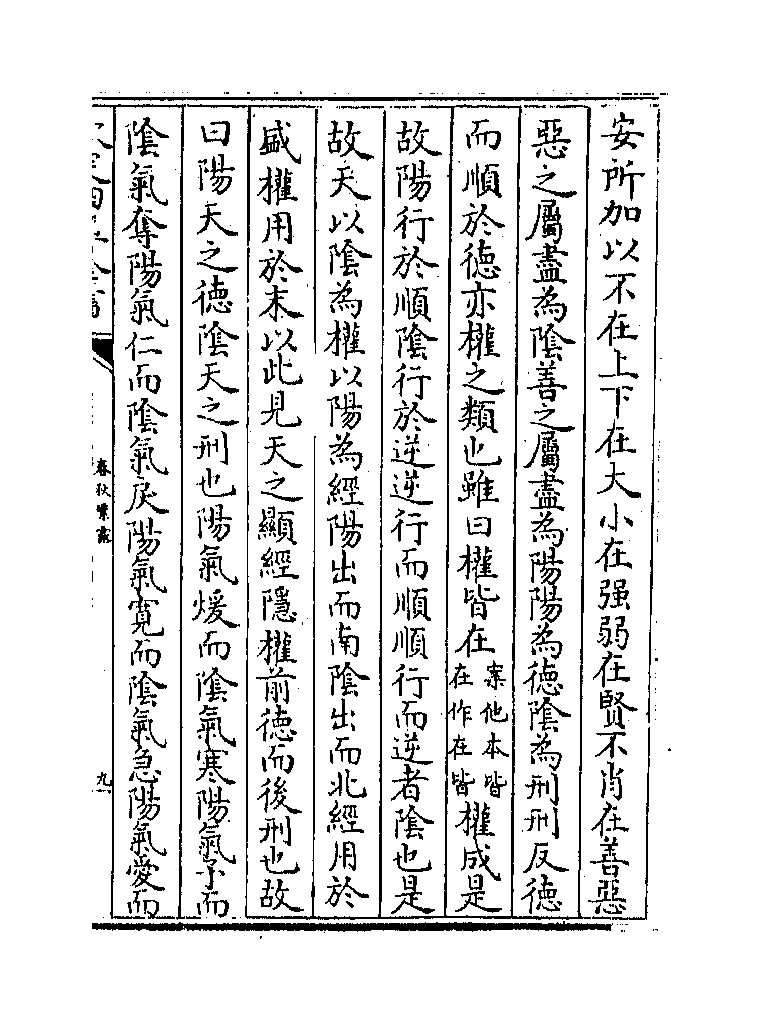 安所加以不在上下在大小在强弱在賢不肖在善惡
惡之屬盡為陰善之屬盡為陽陽為德陰為刑刑反德
而順於德亦權之類也雖曰權皆在案他本皆在作在皆權成是
故陽行於順陰行於逆逆行而順順行而逆者陰也是
故天以陰為權以陽為經陽出而南陰出而北經用於
盛權用於末以此見天之顯經隱權前德而後刑也故
曰陽天之德陰天之刑也陽氣煖而陰氣寒陽氣予而
陰氣奪陽氣仁而陰氣戾陽氣寛而陰氣急陽氣愛而
春秋繁露
九